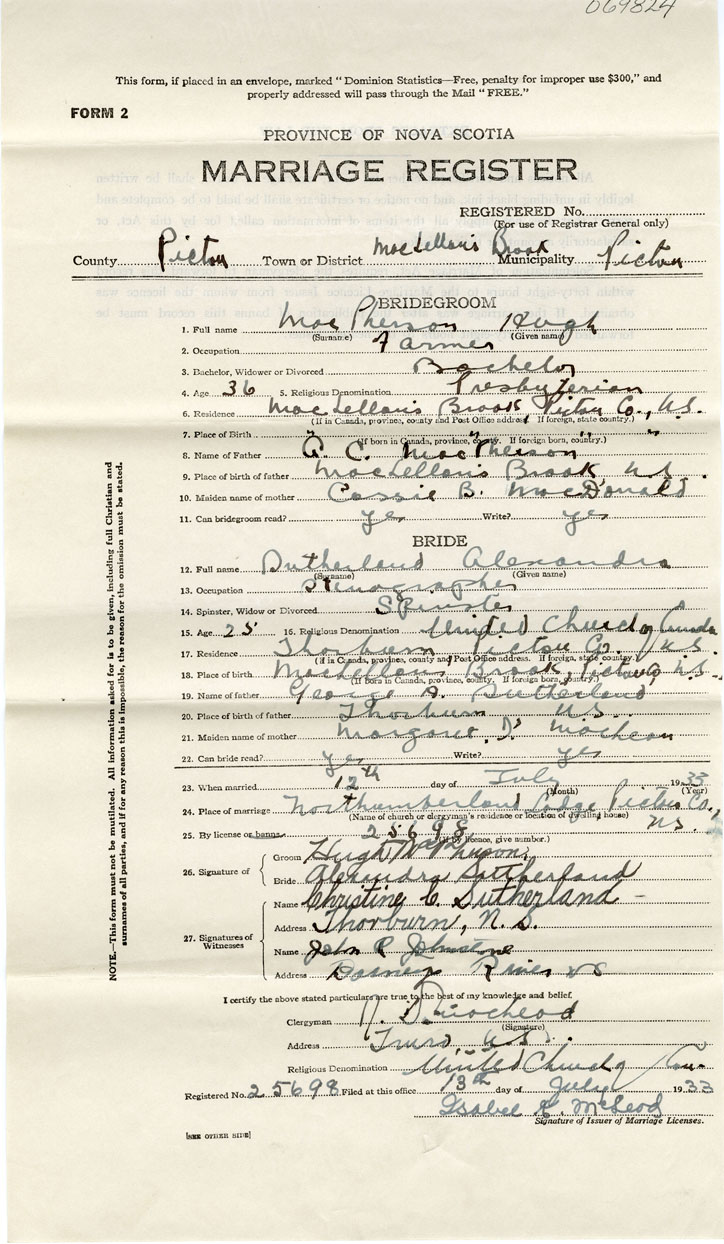 069824
This form, if placed in an envelope, marked "Dominion Statistics—Free, penalty for improper use $300," and
properly addressed will pass through the Mail "FREE."
FORM 2
PROVINCE OF NOVA SCOTIA
MARRIAGE REGISTER
REGISTERED No.
(For use of Registrar General only)
County Pictou Town or District MacLellan's Brook Municipality Pictou
BRIDEGROOM
1. Full name MacPherson Hugh
(Surname) (Given name)
2. Occupation Farmer
3. Bachelor, Widower or Divorced Bachelor
4. Age 36 5. Religious Denomination Presbyterian
6. Residence MacLellan's Brook, Pictou Co., N.S.
(If in Canada, province, county and Post Office address. If foreign, state country.)
7. Place of Birth " " " "
(If born in Canada, province, county. If foreign born, country.)
8. Name of Father A. C. MacPherson
9. Place of birth of father MacLellan's Brook N S
10. Maiden name of mother Cassie B. MacDonald
11. Can bridegroom read? yes Write? yes
BRIDE
12. Full name Sutherland Alexandra
(Surname) (Given name)
13. Occupation Stenographer
14. Spinster, Widow or Divorced Spinster
15. Age 25 16. Religious Denomination United Church of Canada
17. Residence Thorburn Pictou Co. N.S.
(If in Canada, province, county and Post Office address. If foreign, state country)
18. Place of birth MacLellans Brook, Pictou Co N.S.
(If born in Canada, province, county. If foreign born, country.)
19. Name of father George A. Sutherland
20. Place of birth of father Thorburn N.S.
21. Maiden name of mother Margaret J. MacLean
22. Can bride read? yes Write? yes
23. When married 12th day of July 1933
(Month) (Year)
24. Place of marriage Northumberland Lodge Pictou Co.,
(Name of church or clergyman's residence or location of dwelling house)
N.S.
25. By license or banns 25698
(If by licence, give number.)
26. Signature of Groom Hugh McPherson
Bride Alexandra Sutherland
27. Signatures of Witnesses Name Christine C. Sutherland
Address Thorburn, N.S.
Name John R Johnstone
Address Barneys River NS
I certify the above stated particulars are true to the best of my knowledge and belief.
Clergyman
(Signature)
Address Truro, N.S.
Religious Denomination United Church of Can.
Registered No. 25698 Filed at this office 13th day of July 1933
Isabel McLeod
Signature of Issuer of Marriage Licenses.
[SEE OTHER SIDE]
NOTE.—This form must not be mutilated. All information asked for is to be given, including full Christian and
surnames of all parties, and if for any reason this is impossible, the reason for the omission must be stated.